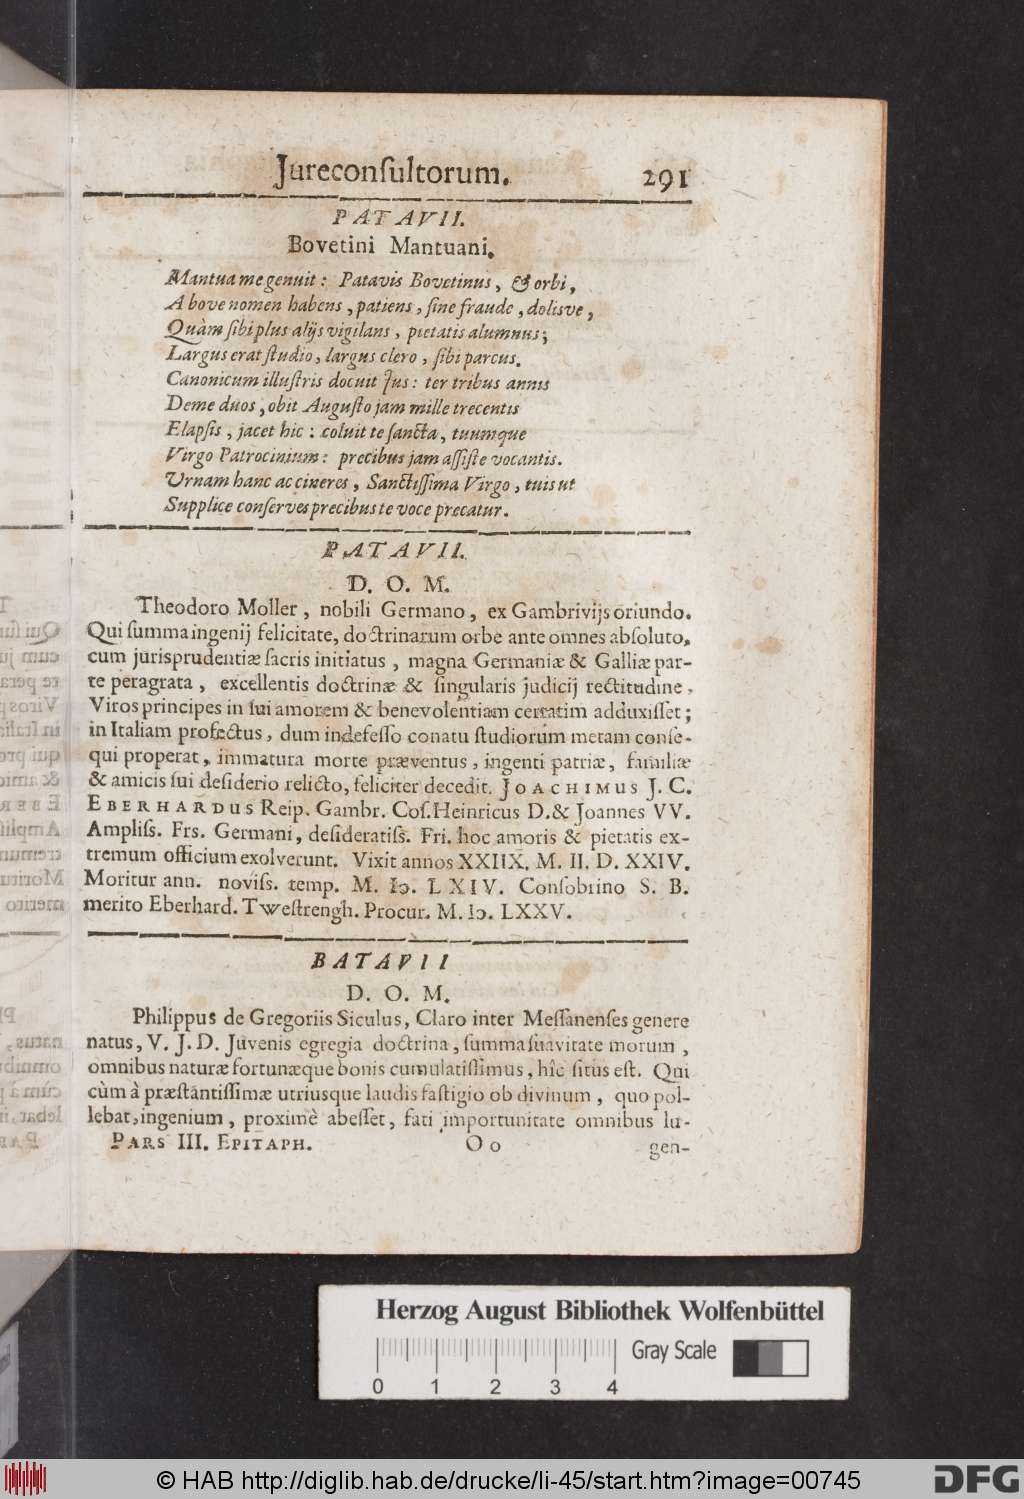 Jureconſultorum. 291
PATAVII.
Bovetini Mantuani.
Mantua me genuit: Patavis Bovetinus, & orbi,
A bove nomen habens, patiens, ſine fraude, dolisve,
Quàm ſibi plus alijs vigilans, pietatis alumnus;
Largus erat ſtudio, largus clero, ſibi parcus.
Canonicum illuſtris docuit Jus: ter tribus annis
Deme duos, obit Auguſto jam mille trecentis
Elapſis, jacet hic: coluit te ſancta, tuumque
Virgo Patrocinium: precibus jam aſſiſte vocantis.
Urnam hanc ac cineres, Sanctiſſima Virgo, tuis ut
Supplice conſerves precibus te voce precatur.
PATAVII.
D. O. M.
Theodoro Moller, nobili Germano, ex Gambrivijs oriundo.
Qui ſumma ingenij felicitate, doctrinarum orbe ante omnes abſoluto,
cum jurisprudentiæ ſacris initiatus, magna Germaniæ & Galliæ par-
te peragrata, excellentis doctrinæ & ſingularis judicij rectitudine,
Viros principes in ſui amorem & benevolentiam certatim adduxiſſet;
in Italiam profectus, dum indefeſſo conatu ſtudiorum metam conſe-
qui properat, immatura morte præventus, ingenti patriæ, familiæ
& amicis ſui deſiderio relicto, feliciter decedit. JOACHIMUS J. C.
EBERHARDUS Reip. Gambr. Coſ. Heinricus D. & Joannes VV.
Ampliſs. Frs. Germani, deſideratiſs. Fri. hoc amoris & pietatis ex-
tremum officium exolverunt. Vixit annos XXIIX. M. II. D. XXIV.
Moritur ann. noviſs. temp. M. Iↄ. LXIV. Conſobrino S. B.
merito Eberhard. Tweſtrengh. Procur. M. Iↄ. LXXV.
BATAVII
D. O. M.
Philippus de Gregoriis Siculus, Claro inter Meſſanenſes genere
natus, V. J. D. Juvenis egregia doctrina, ſumma ſuavitate morum,
omnibus naturæ fortunæque bonis cumulatiſſimus, hîc ſitus eſt. Qui
cùm à præſtantiſſimæ utriusque laudis faſtigio ob divinum, quo pol-
lebat, ingenium, proximè abeſſet, fati importunitate omnibus lu-
PARS III. EPITAPH. Oo gen-
Herzog August Bibliothek Wolfenbüttel
Gray Scale
0 1 2 3 4
© HAB http://diglib.hab.de/drucke/li-45/start.htm?image=00745
DFG